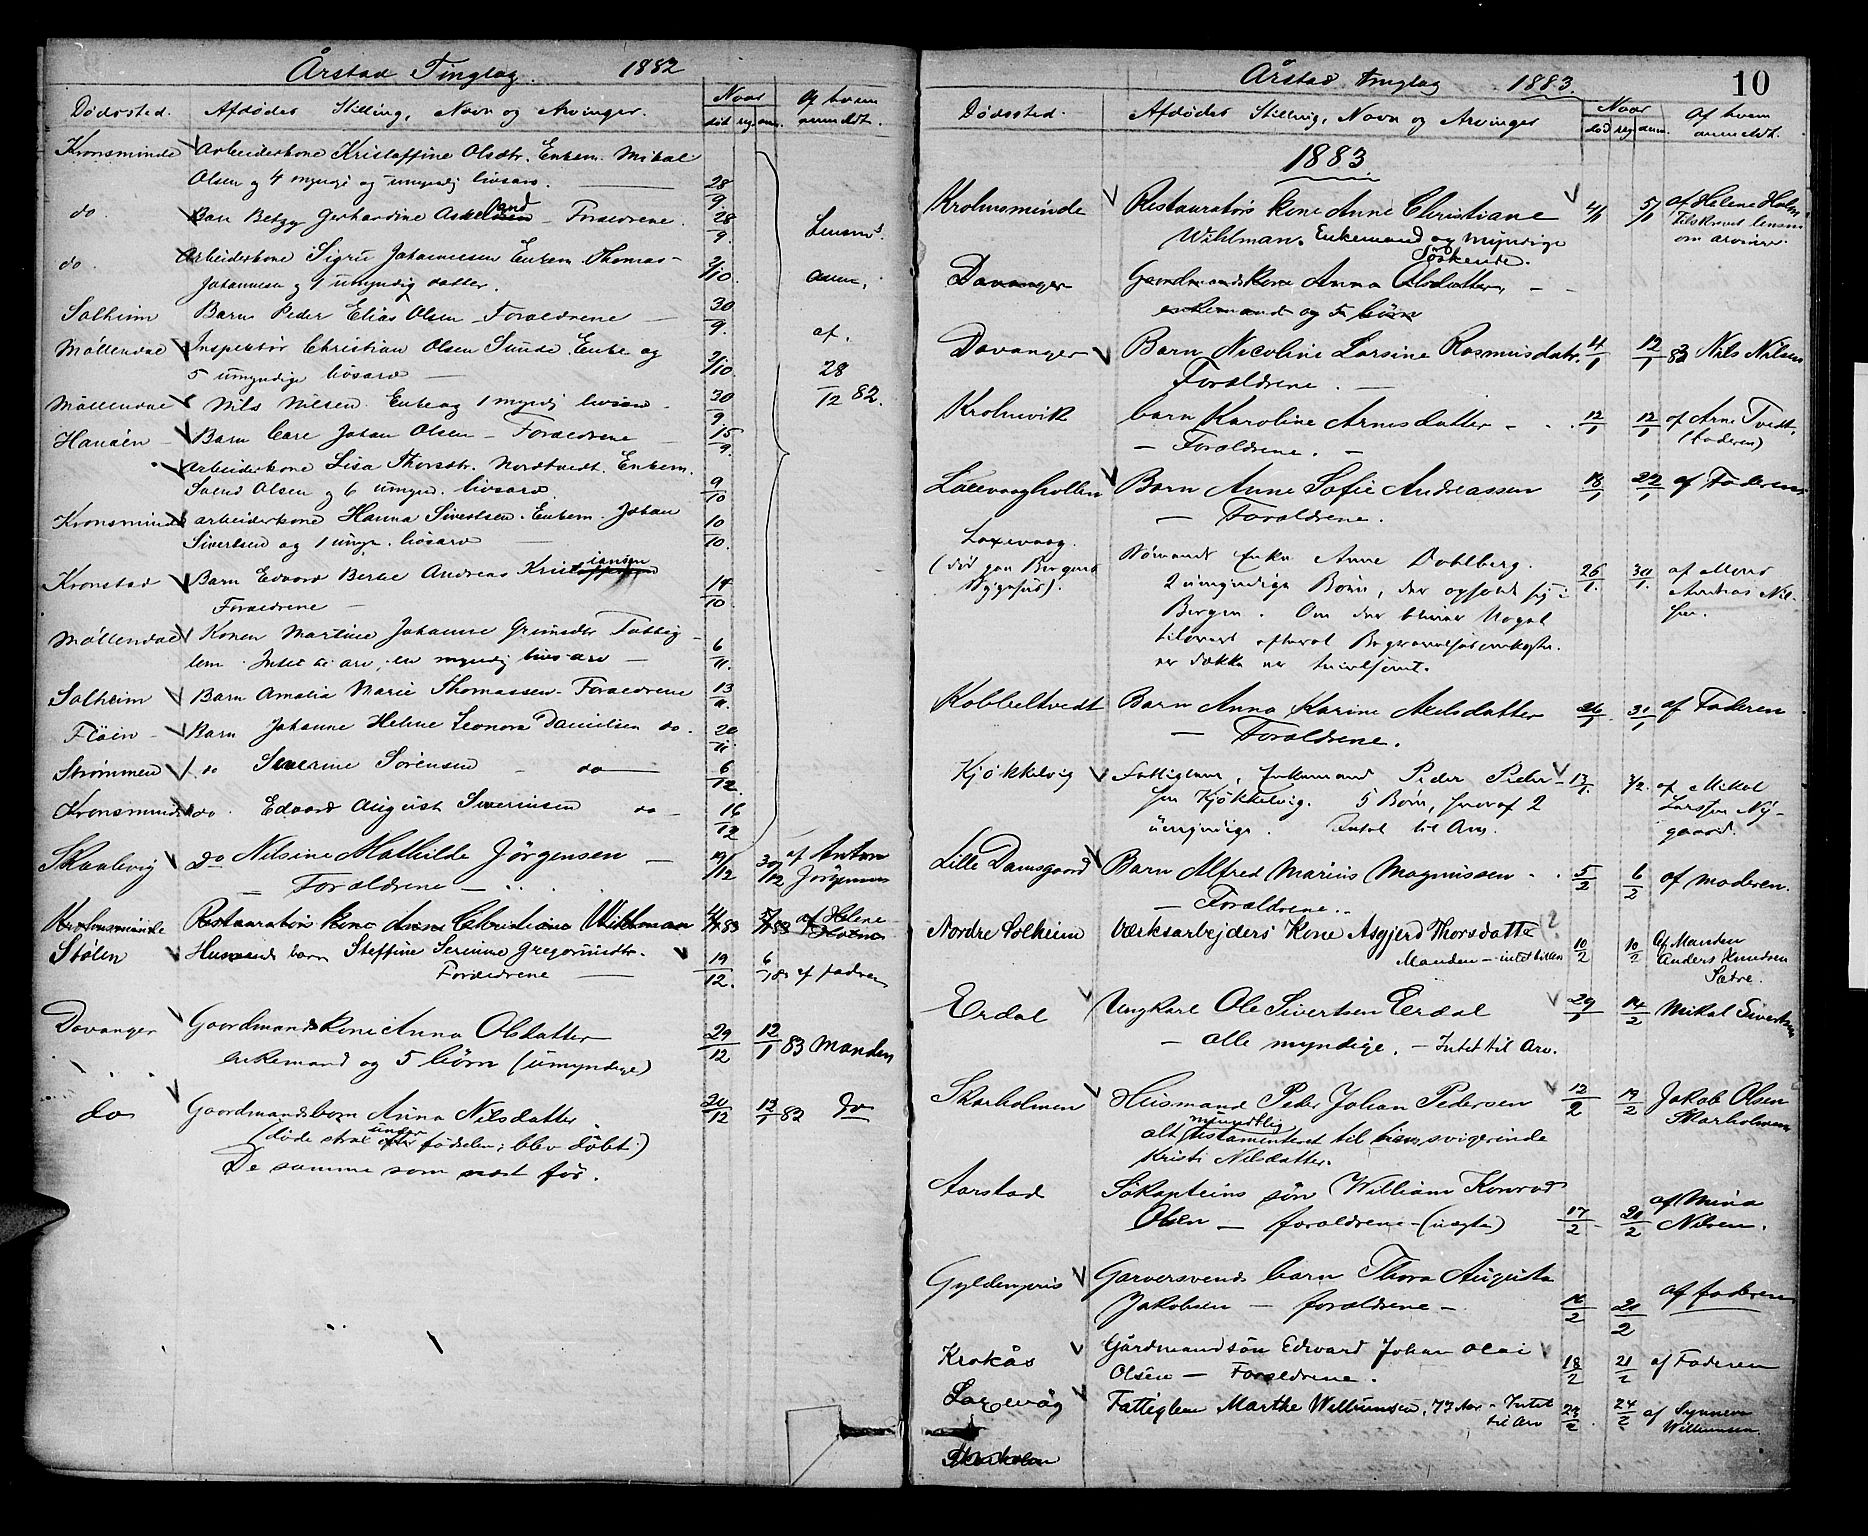 Årstad Tinglag. 1882
Dødssted. Afdødes Stilling, Navn og Arvinger. Naar Af hvem
død reg. anm. anmeldt.
Kronsminde Arbeiderkone Kristoffine Olsdtr. Enkem. Mikal
Olsen og 4 myndige og umyndig livsarv. 28/9.
do. Barn Betzy Gerhardine Askeland – Forældrene. 28/9. Lensm.
do. Arbeiderkone Sigrii Johannessen Enkem. Thomas
Johannesen og 1 umyndig datter. 2/10. anm.
Solheim Barn Peder Elias Olsen – Forældrene – 30/9. af.
Möllendal Inspektør Christian Olsen Sunde. Enke og
5 umyndige livsarv – 2/10. 28
Möllendal Nils Nilsen. Enke og 1 myndig livsarv. 30/9 /12 82.
Haukeen Barn Carl Johan Olsen – Forældrene – 15/9.
Arbeiderkone Lisa Thorsdtr. Nordtvedt. Enkem.
Svend Olsen og 6 umynd. livsarv. 9/10
Kronsminde arbeiderkone Hanna Sivertsen. Enkem. Johan
Sivertsen og 1 umyn. livsarv – 10/10.
Kronstad Barn Edvard Bertel Andreas Kristiansen
Forældrene – 14/10
Möllendal Konen Martine Johanne Grimsdtr Fattig-
lem. Intet til arv, en myndig livsarv – 6/11.
Solheim Barn Amalia Marie Thomassen – Forældrene 13/11.
Flöien – Barn Johanne Helene Leonora Danielsen do. 20/11
Strömmen do Severine Sörensen – do – 6/12.
Kronsminde do. Edvard August Severinsen do – 16/12
Skaalevig do Nilsine Mathilde Jörgensen – 19/12 30/12 af Anton
– Forældrene – Jörgensen
Krohnsminde Restauratörs kone Anne Christiane Wihlman 4/1 83 5/1 83 af Helene
Holm
Stölen Husmands barn Steffine Serine Gregoriusdtr.
Forældrene – 19/12. 6/1 83 af fadren
Davanger Gaardmandskone Anna Olsdatter 29/12 12/1 83 Manden
enkemand og 5 börn (umyndige)
do Gaardmandsbarn Anna Nilsdatter. 20/12 12/1 83 do
(döde strax under efter fødselen; blev döbt.)
De samme som næst før.

Årstad tinglag 1883. 10
Dødssted. Afdødes Stilling, Navn og Arvinger Naar Af hvem
død reg. anm. anmeldt.
1883
Krohnsminde Restauratörs kone Anne Christiane 4/1 5/1 af Helene Holm
Wihlman. Enkemand og myndige Tilskrevet lensm.
Söskende. om arvinger.
Davanger Gaardmandskone Anna Olsdatter, – –
enkemand og 5 börn
Davanger Barn Nicoline Larsine Rasmusdatr. 4/1 12/1 83 Nils Nilsen
Forældrene. –
Krohnvik barn Karoline Arnesdatter – . . 12/1 12/1 af Arne Tvedt,
– Forældrene. – (faderen)
Laxevaagholten Barn Anne Sofie Andreassen 18/1 22/1 af Faderen
– Forældrene.
Laxevaag. Sömands Enke Anne Dahlberg. 26/1. 30/1. af Mons
(död paa Bergens 2 umyndige Börn, der opholde sig i Andreas Nil-
Sygehus). Bergen. Om der bliver Noget sen.
tilovers efterat Begravelsesomkostn.
er dækket er tvivlsomt.
Kobbeltvedt Barn Anna Karine Axelsdatter 26/1. 31/1 af Faderen
– Forældrene.
Kjökkelvig Fattiglem, Enkemand Peder Peder- 13/1. 3/2. af Mikal
sen Kjökkelvig. 5 Börn, hvoraf 2 Larssen Ny-
umyndige. Intet til Arv. gaard.
Lille Damsgaard Barn Alfred Marius Magnussen . . 5/2 6/2 af moderen.
– Forældrene..
Nordre Solheim Værksarbejders Kone Asgjerd Thorsdatte 10/2 10/2 Af Manden
Manden – intet til Arv Anders Knudsen
Sætre.
Erdal Ungkarl Ole Sivertsen Erdal 29/1 14/2 Mikal Sivertsen
– alle myndige. – Intet til Arv.
Skarholmen Husmand Peder Johan Pedersen 12/2 19/2 Jakob Olsen
alt mundtlig testamenteret til hans svigerinde Skarholmen
Kristi Nilsdatter.
Aarstad Sökapteins sön William Konrad
Olsen – forældrene – (uægte) 17/2 – 20/2 af Mina
Nilsen.
Gyldenpris Garversvends barn Thora Augusta
Jakobsen – forældrene – 16/2 20/2 af faderen
Krokås Gårdmandsön Edvard Johan Olai
Olsen – Forældrene. 18/2 21/2 af Faderen
Laxevåg Fattiglem Marthe Willumsen, 73 Aar – Intet
til Arv 22/2. 24/2 af Synneva
Willumsen.
Skarholm